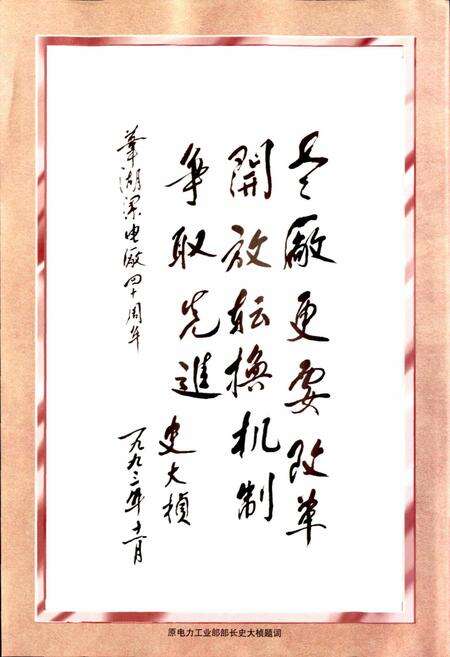 老廠更要改革
開放転換机制
争取先進
史大桢
一九九二年十一月
葦湖梁电厰四十周年
原电力工业部部长史大桢题词